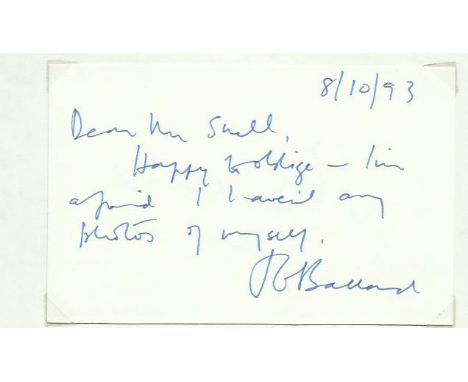 8/10/93
Dear Mr Snell,
Happy to oblige – I'm
afraid I haven't any
photos of myself.
JG Ballard